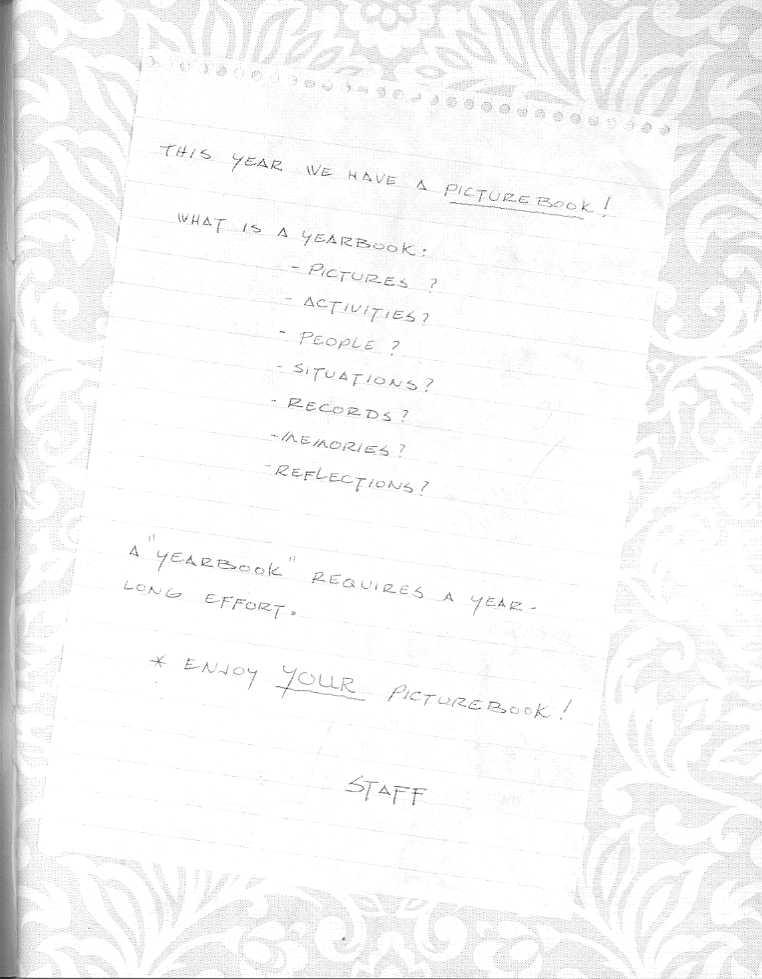 THIS YEAR WE HAVE A PICTUREBOOK!
WHAT IS A YEARBOOK:
- PICTURES?
- ACTIVITIES?
- PEOPLE?
- SITUATIONS?
- RECORDS?
- MEMORIES?
- REFLECTIONS?
A "YEARBOOK" REQUIRES A YEAR-
LONG EFFORT.
* ENJOY YOUR PICTUREBOOK!
STAFF